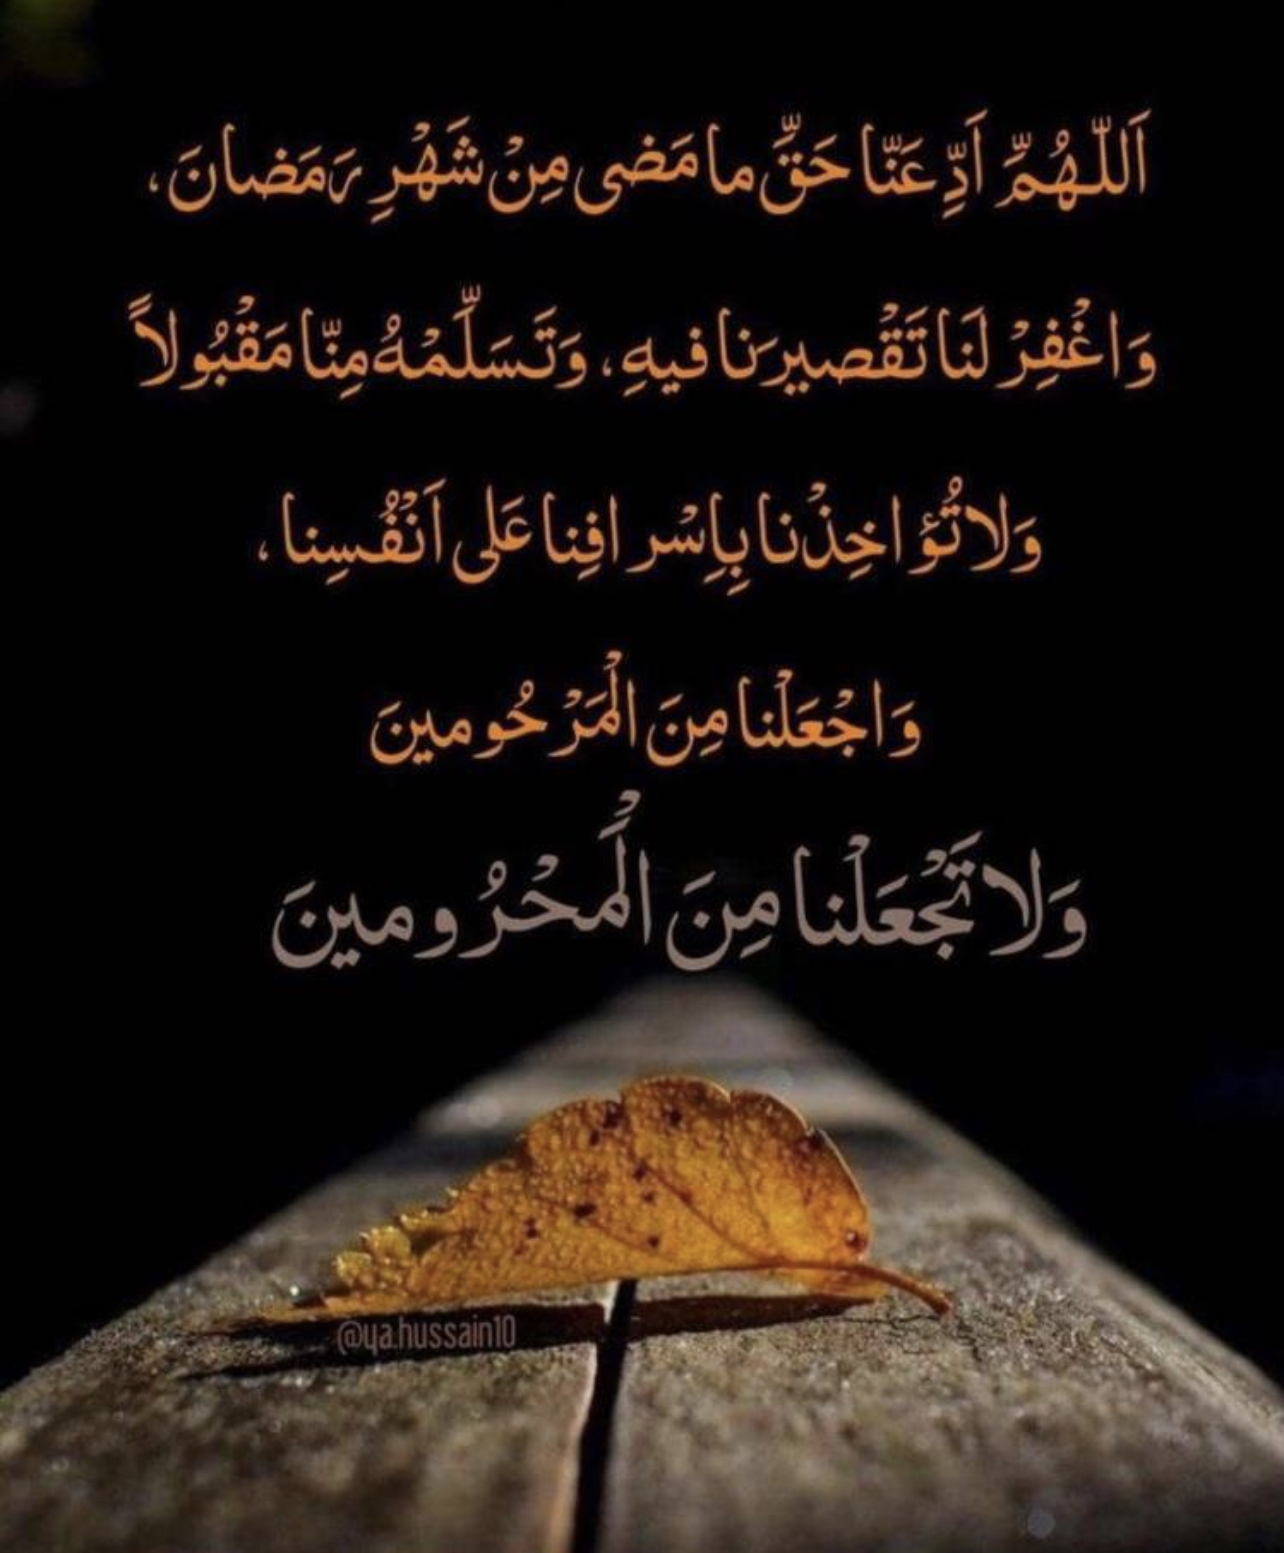 اَللّهُمَّ اَدِّ عَنّا حَقِّ ما مَضى مِنْ شَهْرِ رَمَضانَ،
وَاغْفِرْ لَنا تَقْصيرَنا فيهِ، وَتَسَلَّمْهُ مِنّا مَقْبُولاً
وَلا تُؤاخِذْنا بِاِسْرافِنا عَلى اَنْفُسِنا،
وَاجْعَلْنا مِنَ الْمَرْحُومينَ
وَلا تَجْعَلْنا مِنَ الْمَحْرُومينَ
@ya.hussain10